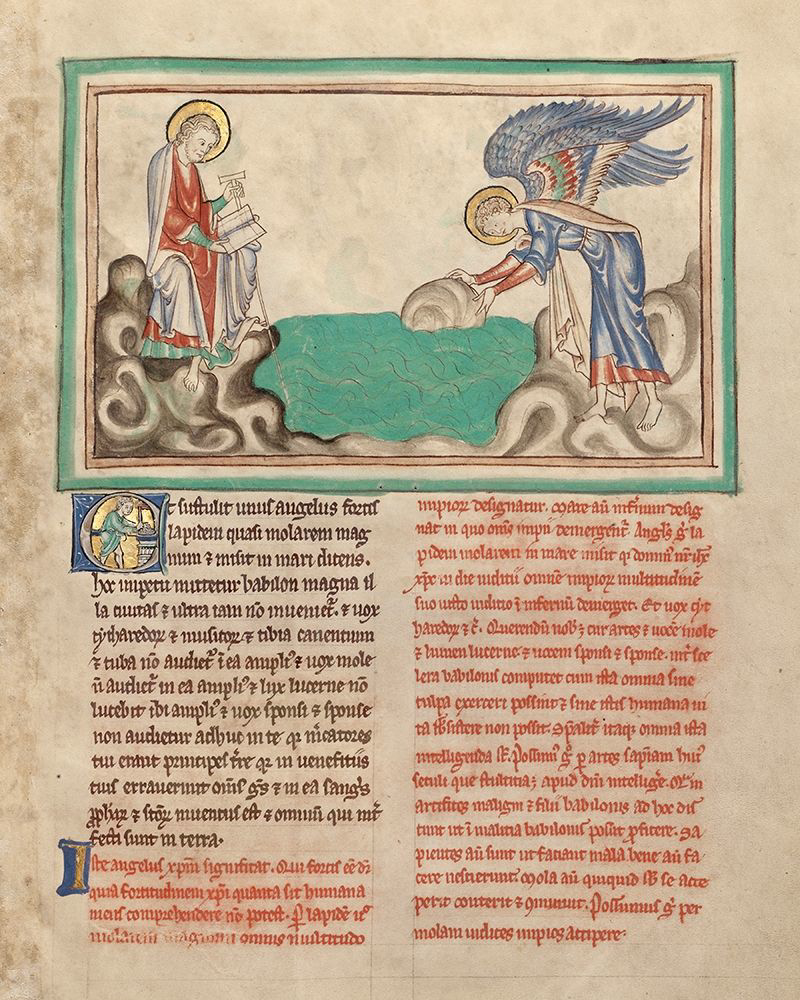 Et sustulit unus angelus fortis
lapidem quasi molarem mag
num & misit in mari dicens.
hoc impetu mittetur babilon magna il
la ciuitas & ultra iam nō inueniet̄. & uox
cytharedoꝝ & musicoꝝ & tibia canentium
& tuba nō audiet̄ ī ea ampli⁹ & uox mole
ū audiet̄ in ea ampli⁹ & lux lucerne nō
lucebit ibi ampli⁹ & uox sponsi & sponse
non audietur adhuc in te qꝛ m̄catores
tui erant principes t̄re qꝛ in ueneficiis
tuis errauerunt om̄s & in ea sangīs
ꝓphaꝝ & sc̄oꝝ inuentus est & omnium qui int̄
fecti sunt in terra.
Iste angelus xp̄m significat. Qui fortis
quia fortitudinem xp̄i quanta sit humana
mens comprehendere nō potest. ꝑ lapidē
molarem magnum omnis multitudo
impioꝝ designatur. Mare aū infernum desig
nat in quo om̄s impii demergent̄. Angl̄s ḡ la
pidem molarem in mare misit qꝛ
xp̄c in die iudicii omnē impioꝝ multitudinē
suo iusto iudicio ī infernū demerget. Et uox cyt
haredoꝝ & c̄. Querendū nob̄ cur artes & uocē mole
& lumen lucerne & uocem sponsi & sponse. int̄ sce
lera babilonis computet cum ista omnia sine
culpa exerceri possint & sine istis humana ui
ta subsistere non possit. Sp̄alit̄ itaqꝫ omnia ista
intelligenda s̄t. Possum⁹ ḡ ꝑ artes sapīam hui⁹
seculi que stultitia apud dm̄ intelligē.
artifices maligni & filii babilonis ad hoc dis
cunt ut ī malitia babilonis possint ꝓficere. Sa
pientes aū sunt ut faciant mala bene aū fa
cere nescierunt. Mola aū quicquid se acce
perit conterit & ꝯminuit. Possumus ḡ per
molam iudices impios accipere.